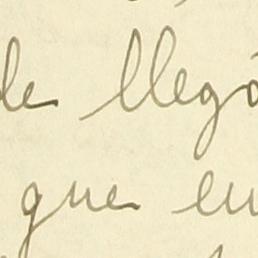 le llegó
que en